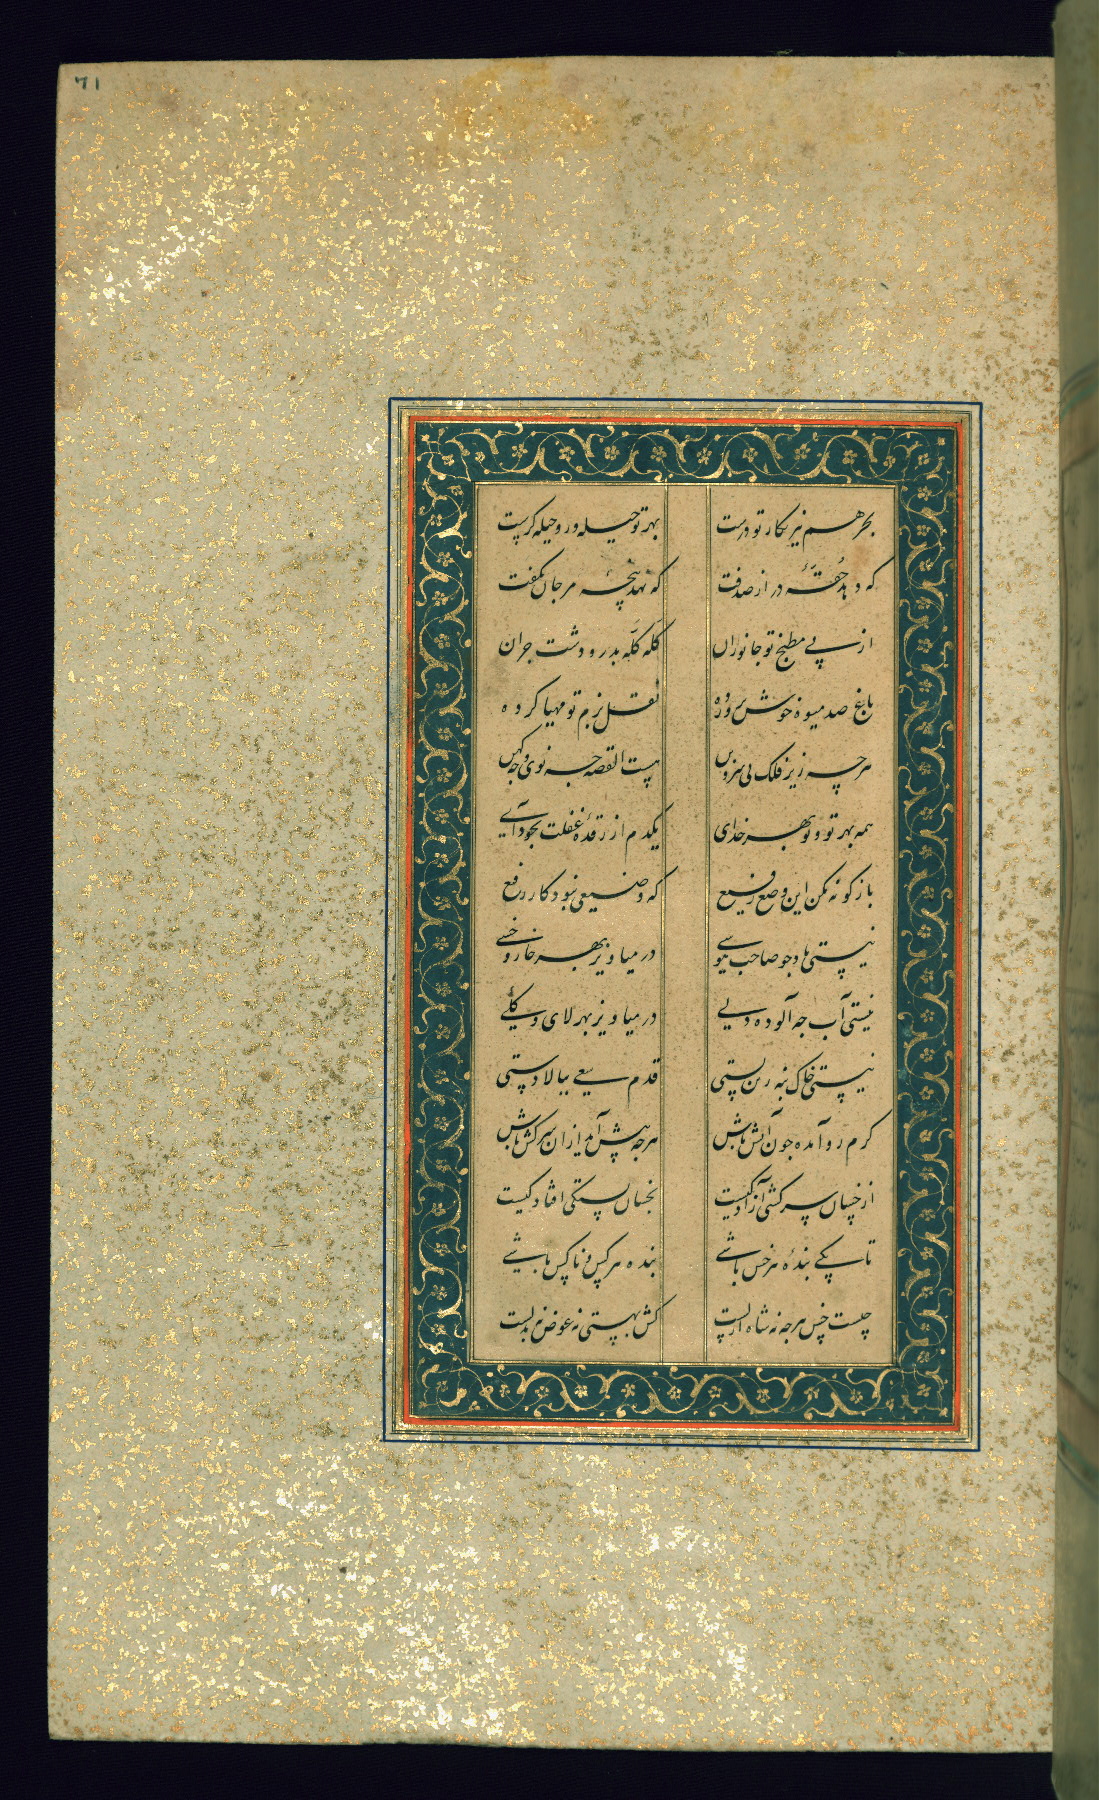 ۷۱
بحر هم نیز بکار تو درست بهر تو حیله ور و حیله گرست
که دهد حقهٔ در از صدفت که نهد پنجهٔ مرجان بکفت
از پی مطبخ تو جانوران گله گله بدر و دشت چران
باغ صد میوهٔ خوش پرورده نقل بزم تو مهیا کرده
هرچه زیر فلک بی سر و بن هست القصه چه نوی و چه کهن
همه بهر تو و تو بهر خدای یکدم از رقدهٔ غفلت بخود آی
بازکونه مکن این وضع رفیع که وضیعی نبود کار رفیع
نیستی باد چو صاحب هوسی درمیاویز بهر خار و خسی
نیستی آب چه آلوده دلی درمیاویز بهر لای و کلی
نیستی خاک بنه زین پستی قدم سعی ببالا دستی
کرم رو آمده چون آتش باش هرچه پیش آید ازان سرکش باش
از خسان سرکشی آزادکیست بخسان پستکی افتادکیست
تا بکی بندهٔ هر خس باشی بنده هر کس و ناکس باشی
چیست خس هرچه نه شاه ازلست کش بهستی نه عوض نه بدلست